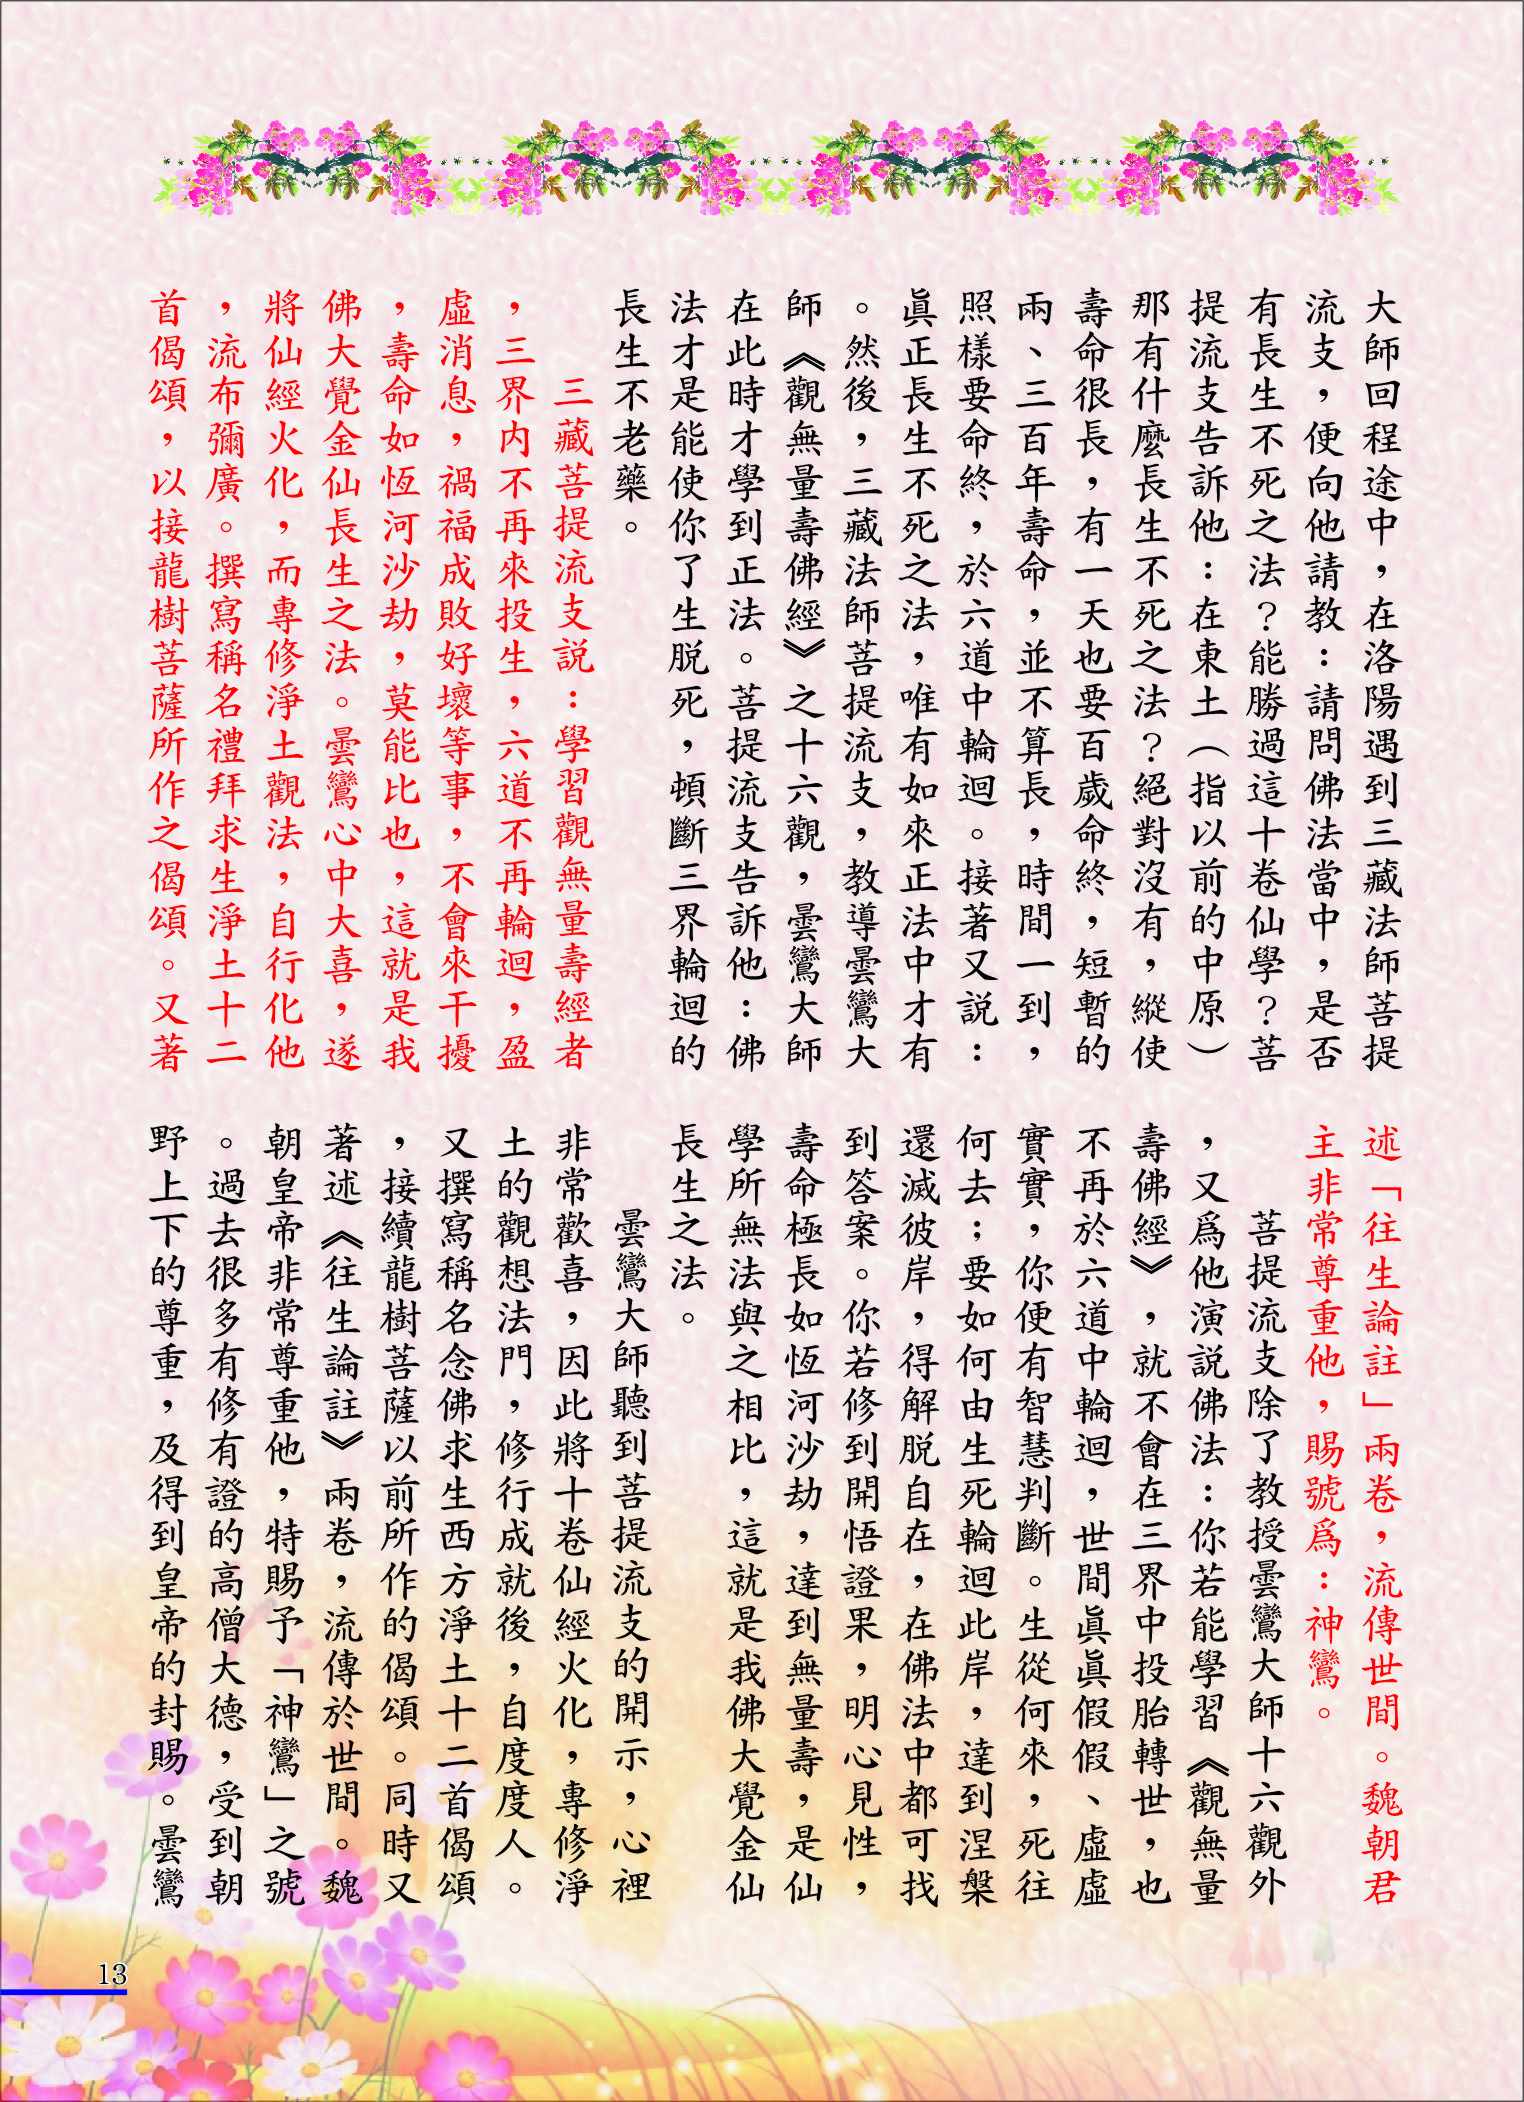 大師回程途中，在洛陽遇到三藏法師菩提
流支，便向他請教：請問佛法當中，是否
有長生不死之法？能勝過這十卷仙學？菩
提流支告訴他：在東土（指以前的中原）
那有什麼長生不死之法？絕對沒有，縱使
壽命很長，有一天也要百歲命終，短暫的
兩、三百年壽命，並不算長，時間一到，
照樣要命終，於六道中輪迴。接著又說：
真正長生不死之法，唯有如來正法中才有
。然後，三藏法師菩提流支，教導曇鸞大
師《觀無量壽佛經》之十六觀，曇鸞大師
在此時才學到正法。菩提流支告訴他：佛
法才是能使你了生脫死，頓斷三界輪迴的
長生不老藥。
三藏菩提流支說：學習觀無量壽經者
，三界內不再來投生，六道不再輪迴，盈
虛消息，禍福成敗好壞等事，不會來干擾
，壽命如恆河沙劫，莫能比也，這就是我
佛大覺金仙長生之法。曇鸞心中大喜，遂
將仙經火化，而專修淨土觀法，自行化他
，流布彌廣。撰寫稱名禮拜求生淨土十二
首偈頌，以接龍樹菩薩所作之偈頌。又著
述「往生論註」兩卷，流傳世間。魏朝君
主非常尊重他，賜號為：神鸞。
菩提流支除了教授曇鸞大師十六觀外
，又為他演說佛法：你若能學習《觀無量
壽佛經》，就不會在三界中投胎轉世，也
不再於六道中輪迴，世間真真假假、虛虛
實實，你便有智慧判斷。生從何來，死往
何去；要如何由生死輪迴此岸，達到涅槃
還滅彼岸，得解脫自在，在佛法中都可找
到答案。你若修到開悟證果，明心見性，
壽命極長如恆河沙劫，達到無量壽，是仙
學所無法與之相比，這就是我佛大覺金仙
長生之法。
曇鸞大師聽到菩提流支的開示，心裡
非常歡喜，因此將十卷仙經火化，專修淨
土的觀想法門，修行成就後，自度度人。
又撰寫稱名念佛求生西方淨土十二首偈頌
，接續龍樹菩薩以前所作的偈頌。同時又
著述《往生論註》兩卷，流傳於世間。魏
朝皇帝非常尊重他，特賜予「神鸞」之號
。過去很多有修有證的高僧大德，受到朝
野上下的尊重，及得到皇帝的封賜。曇鸞
13